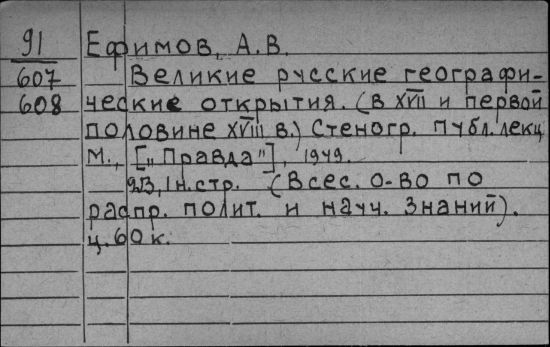 91 Ефимов, А.В.
607 Великие русские географи-
608 ческие открытия. (в XVII и первой
половине XVIII в.) Стеногр. публ. лекц
М., [„Правда"], 1949.
1 н. стр. (Всес. о-во по
распр. полит. и науч. знаний).
ц. 60 к.